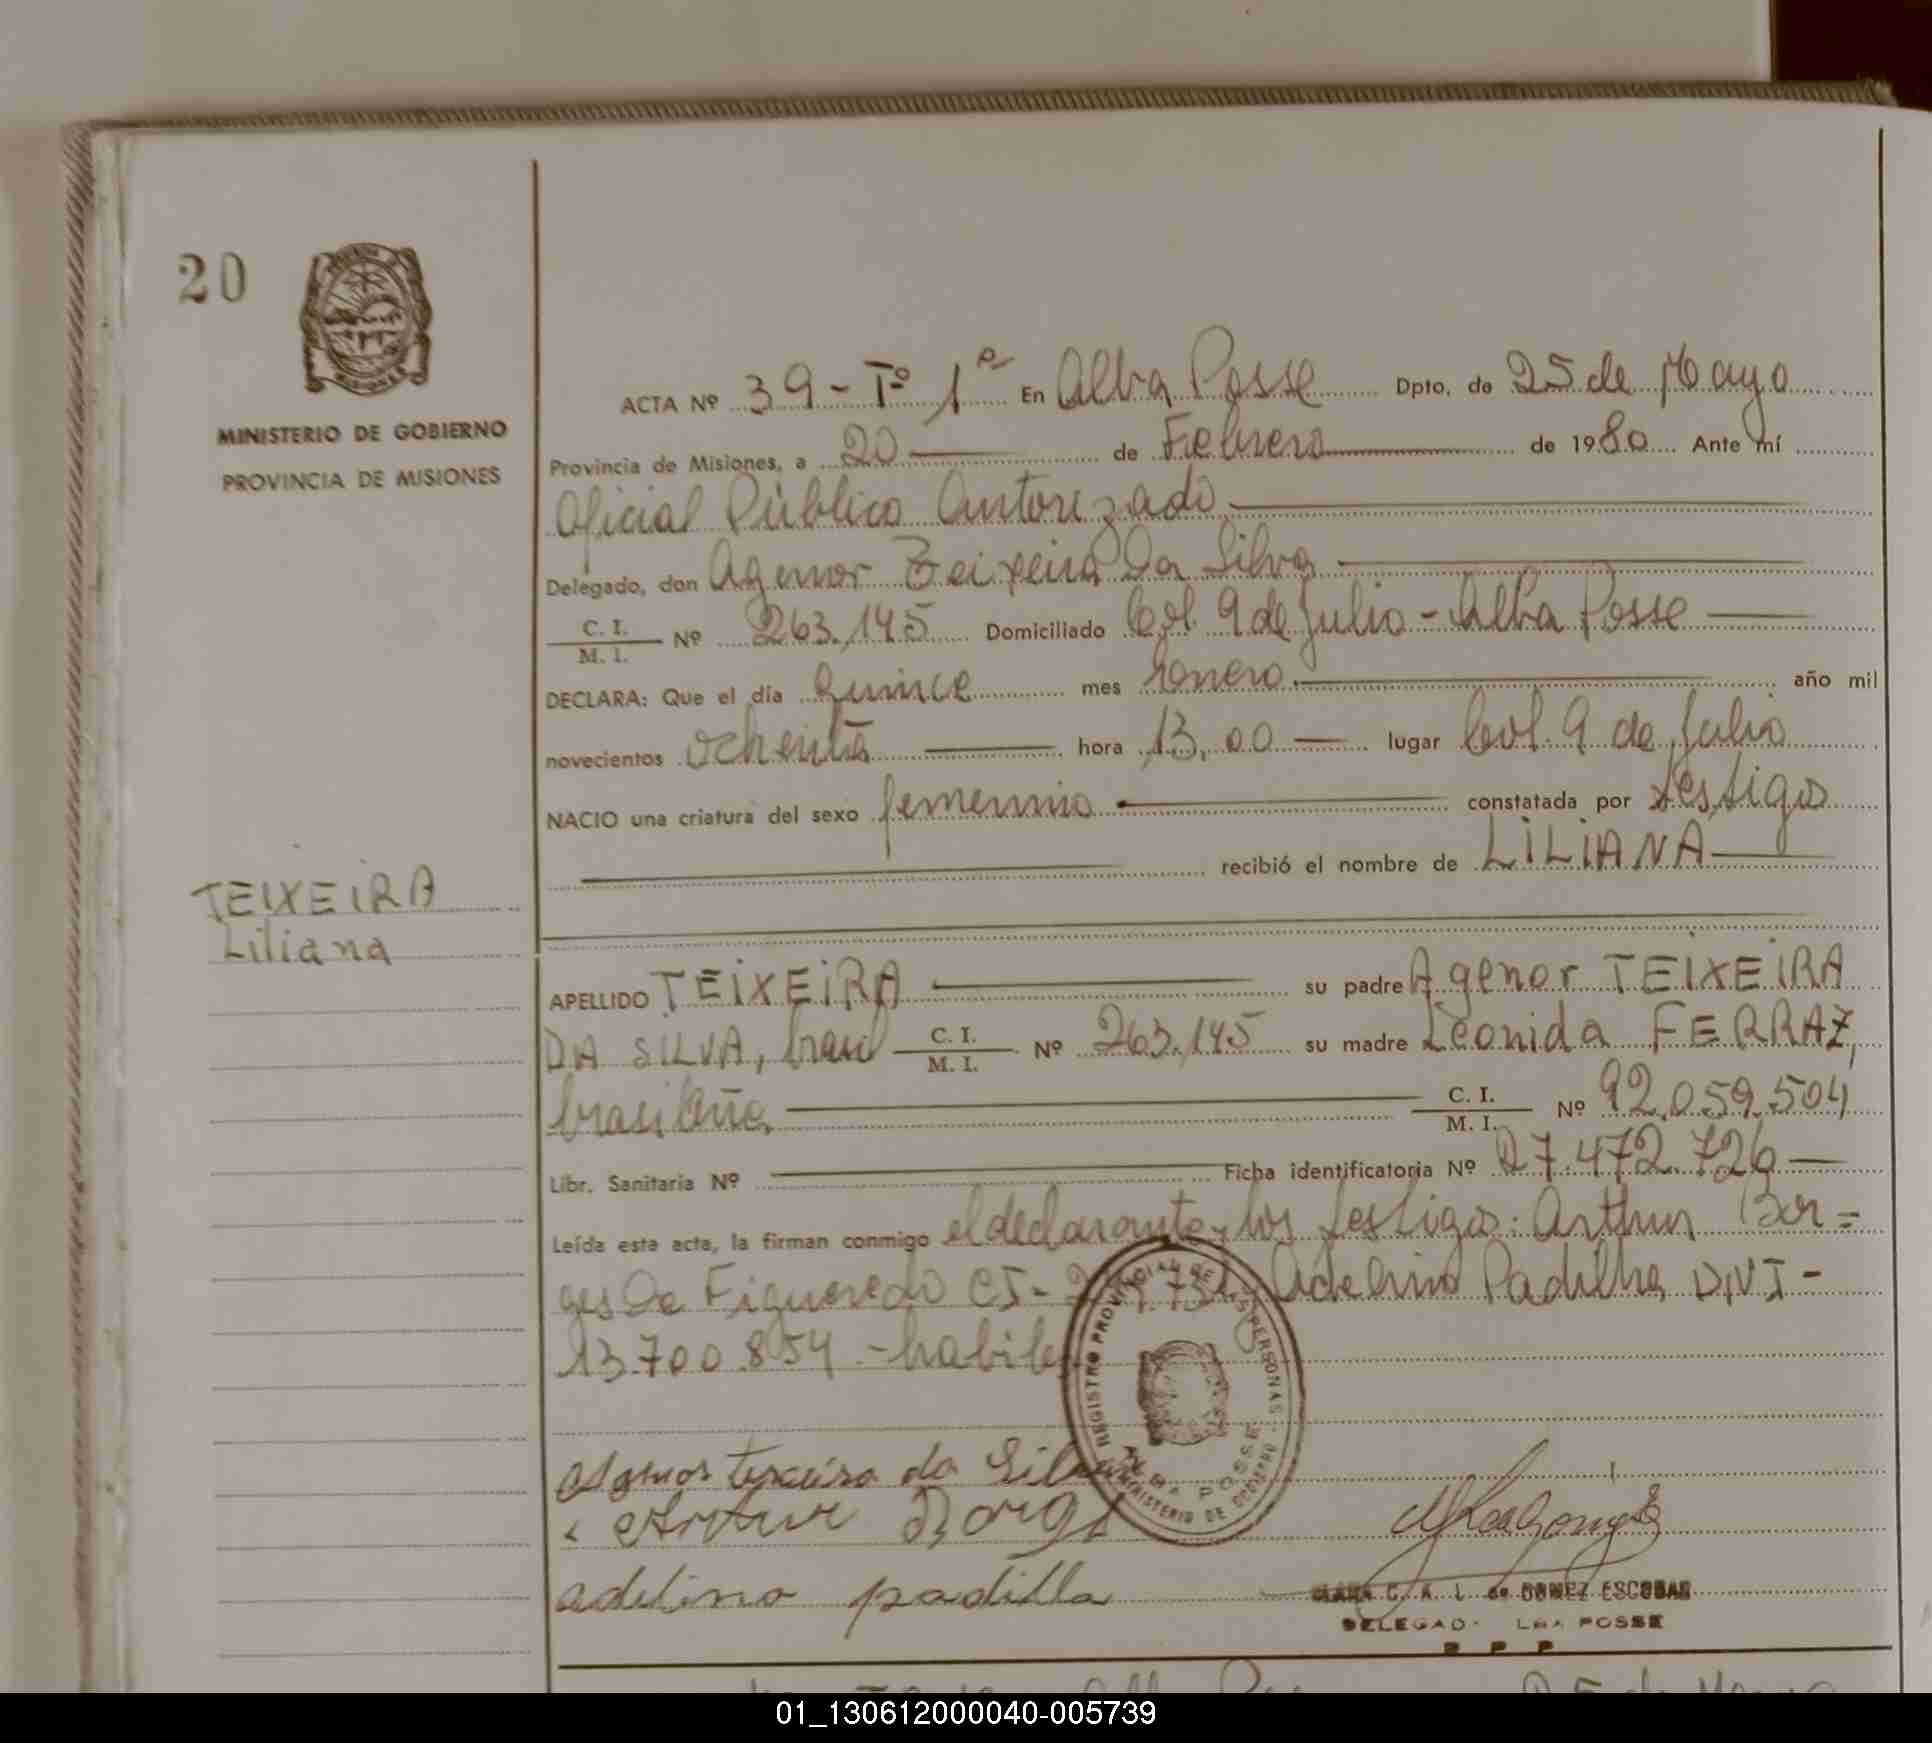 20
MINISTERIO DE GOBIERNO
PROVINCIA DE MISIONES
ACTA Nº 39 - Tº 1º En Alba Posse Dpto. de 25 de Mayo
Provincia de Misiones, a 20 de Febrero de 1980 Ante mí
Oficial Público Autorizado
Delegado, don Agenor Teixeira Da Silva
C. I.
M. I. Nº 263.145 Domiciliado Col. 9 de Julio - Alba Posse
DECLARA: Que el día quince mes Enero año mil
novecientos ochenta hora 13,00 lugar Col. 9 de Julio
NACIO una criatura del sexo femenino constatada por testigos
recibió el nombre de LILIANA
TEIXEIRA
Liliana
APELLIDO TEIXEIRA su padre Agenor TEIXEIRA
DA SILVA, bras C. I. M. I. Nº 263.145 su madre Leonida FERRAZ,
brasileña C. I. M. I. Nº 92.059.504
Libr. Sanitaria Nº Ficha identificatoria Nº 27.472.726
Leída esta acta, la firman conmigo el declarante y los testigos: Arthur Bor=
ges Da Figueredo CI- Adelino Padilha DNI-
13.700.854 - habiles
REGISTRO PROVINCIAL DE LAS PERSONAS
ALBA POSSE
MINISTERIO DE GOBIERNO
Agenor teixeira da Silva
Artur Borges
adelino padilla
CLARA C. A. L. de GOMEZ ESCOBAR
DELEGAD ALBA POSSE
R P P
01_130612000040-005739